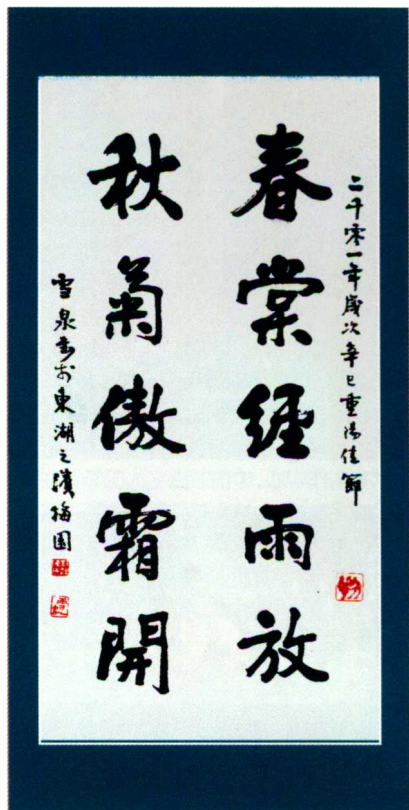 二千零一年歲次辛巳重陽佳節
春棠經雨放
秋菊傲霜開
雪泉書於東湖之濱梅園